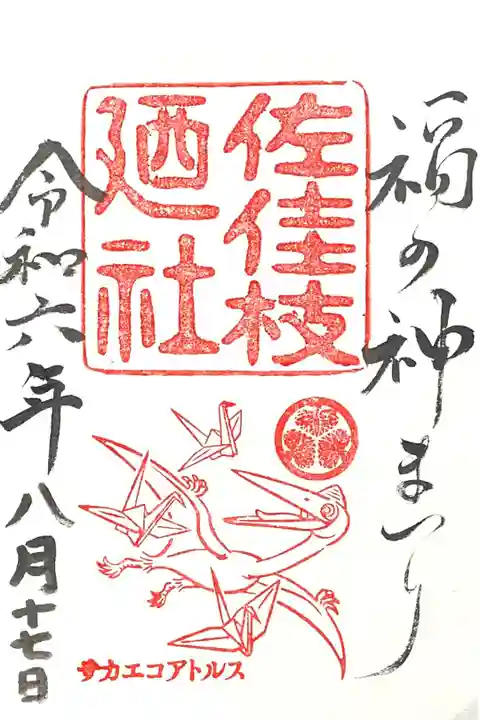 福の神まつり
佐佳枝
廼社
サカエコアトルス
令和六年八月十七日